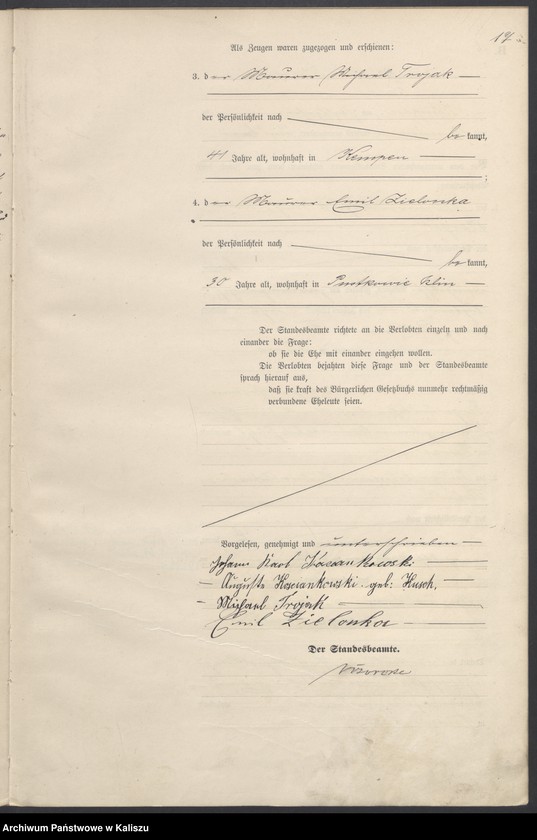 17
Als Zeugen waren zugezogen und erschienen:
3. der Maurer Michael Trojak
der Persönlichkeit nach
be kannt,
41 Jahre alt, wohnhaft in Kempen
;
4. der Maurer Emil Zielonka
der Persönlichkeit nach
be kannt,
30 Jahre alt, wohnhaft in
Der Standesbeamte richtete an die Verlobten einzeln und nach
einander die Frage:
ob sie die Ehe mit einander eingehen wollen.
Die Verlobten bejahten diese Frage und der Standesbeamte
sprach hierauf aus,
daß sie kraft des Bürgerlichen Gesetzbuchs nunmehr rechtmäßig
verbundene Eheleute seien.
Vorgelesen, genehmigt und unterschrieben
Johann Karl
Auguste geb: Husch.
Michael Trojak
Emil Zielonka
Der Standesbeamte.
Archiwum Państwowe w Kaliszu